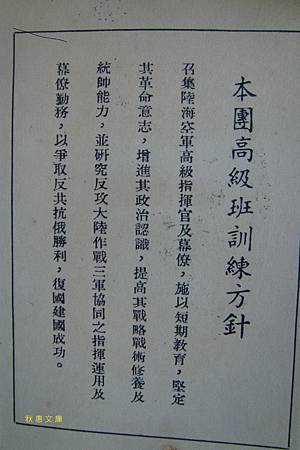 本團高級班訓練方針
召集陸海空軍高級指揮官及幕僚，施以短期教育，堅定
其革命意志，增進其政治認識，提高其戰略戰術修養及
統帥能力，並研究反攻大陸作戰三軍協同之指揮運用及
幕僚勤務，以爭取反共抗俄勝利，復國建國成功。
秋惠文庫